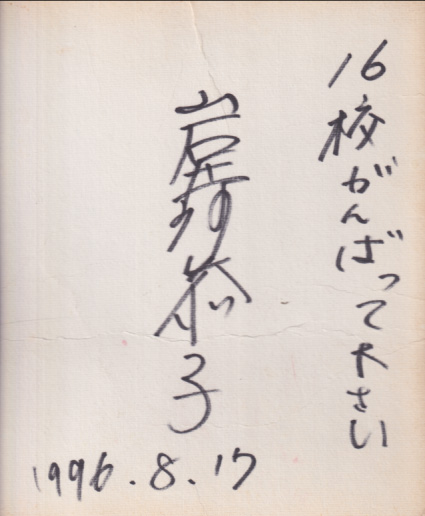 16校がんばって下さい
岩崎恭子
1996.8.17